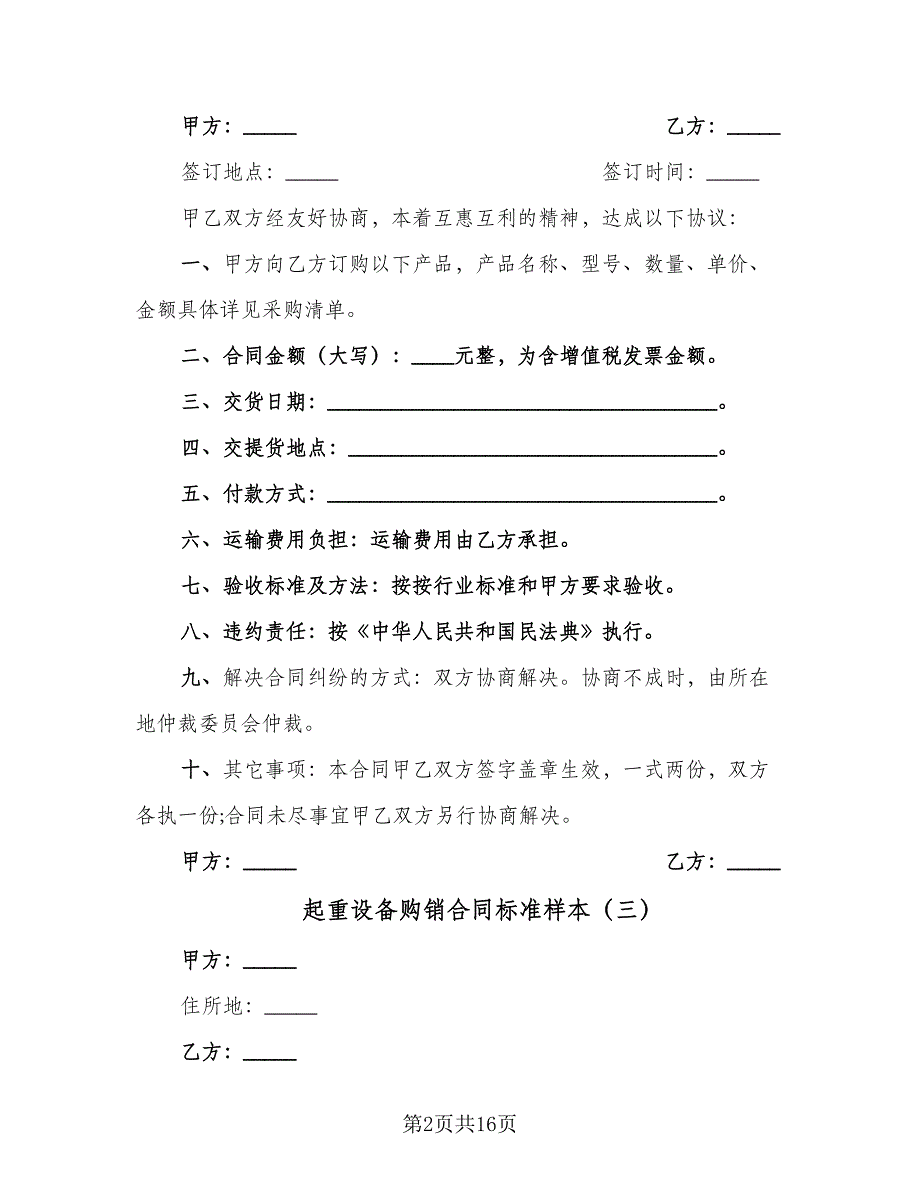 甲方：_____ 乙方：_____
签订地点：_____ 签订时间：_____
甲乙双方经友好协商，本着互惠互利的精神，达成以下协议：
一、甲方向乙方订购以下产品，产品名称、型号、数量、单价、
金额具体详见采购清单。
二、合同金额（大写）：____元整，为含增值税发票金额。
三、交货日期：_____________________________________。
四、交提货地点：___________________________________。
五、付款方式：_____________________________________。
六、运输费用负担：运输费用由乙方承担。
七、验收标准及方法：按按行业标准和甲方要求验收。
八、违约责任：按《中华人民共和国民法典》执行。
九、解决合同纠纷的方式：双方协商解决。协商不成时，由所在
地仲裁委员会仲裁。
十、其它事项：本合同甲乙双方签字盖章生效，一式两份，双方
各执一份;合同未尽事宜甲乙双方另行协商解决。
甲方：_____ 乙方：_____
起重设备购销合同标准样本（三）
甲方：_____
住所地：_____
乙方：_____
第2页共16页